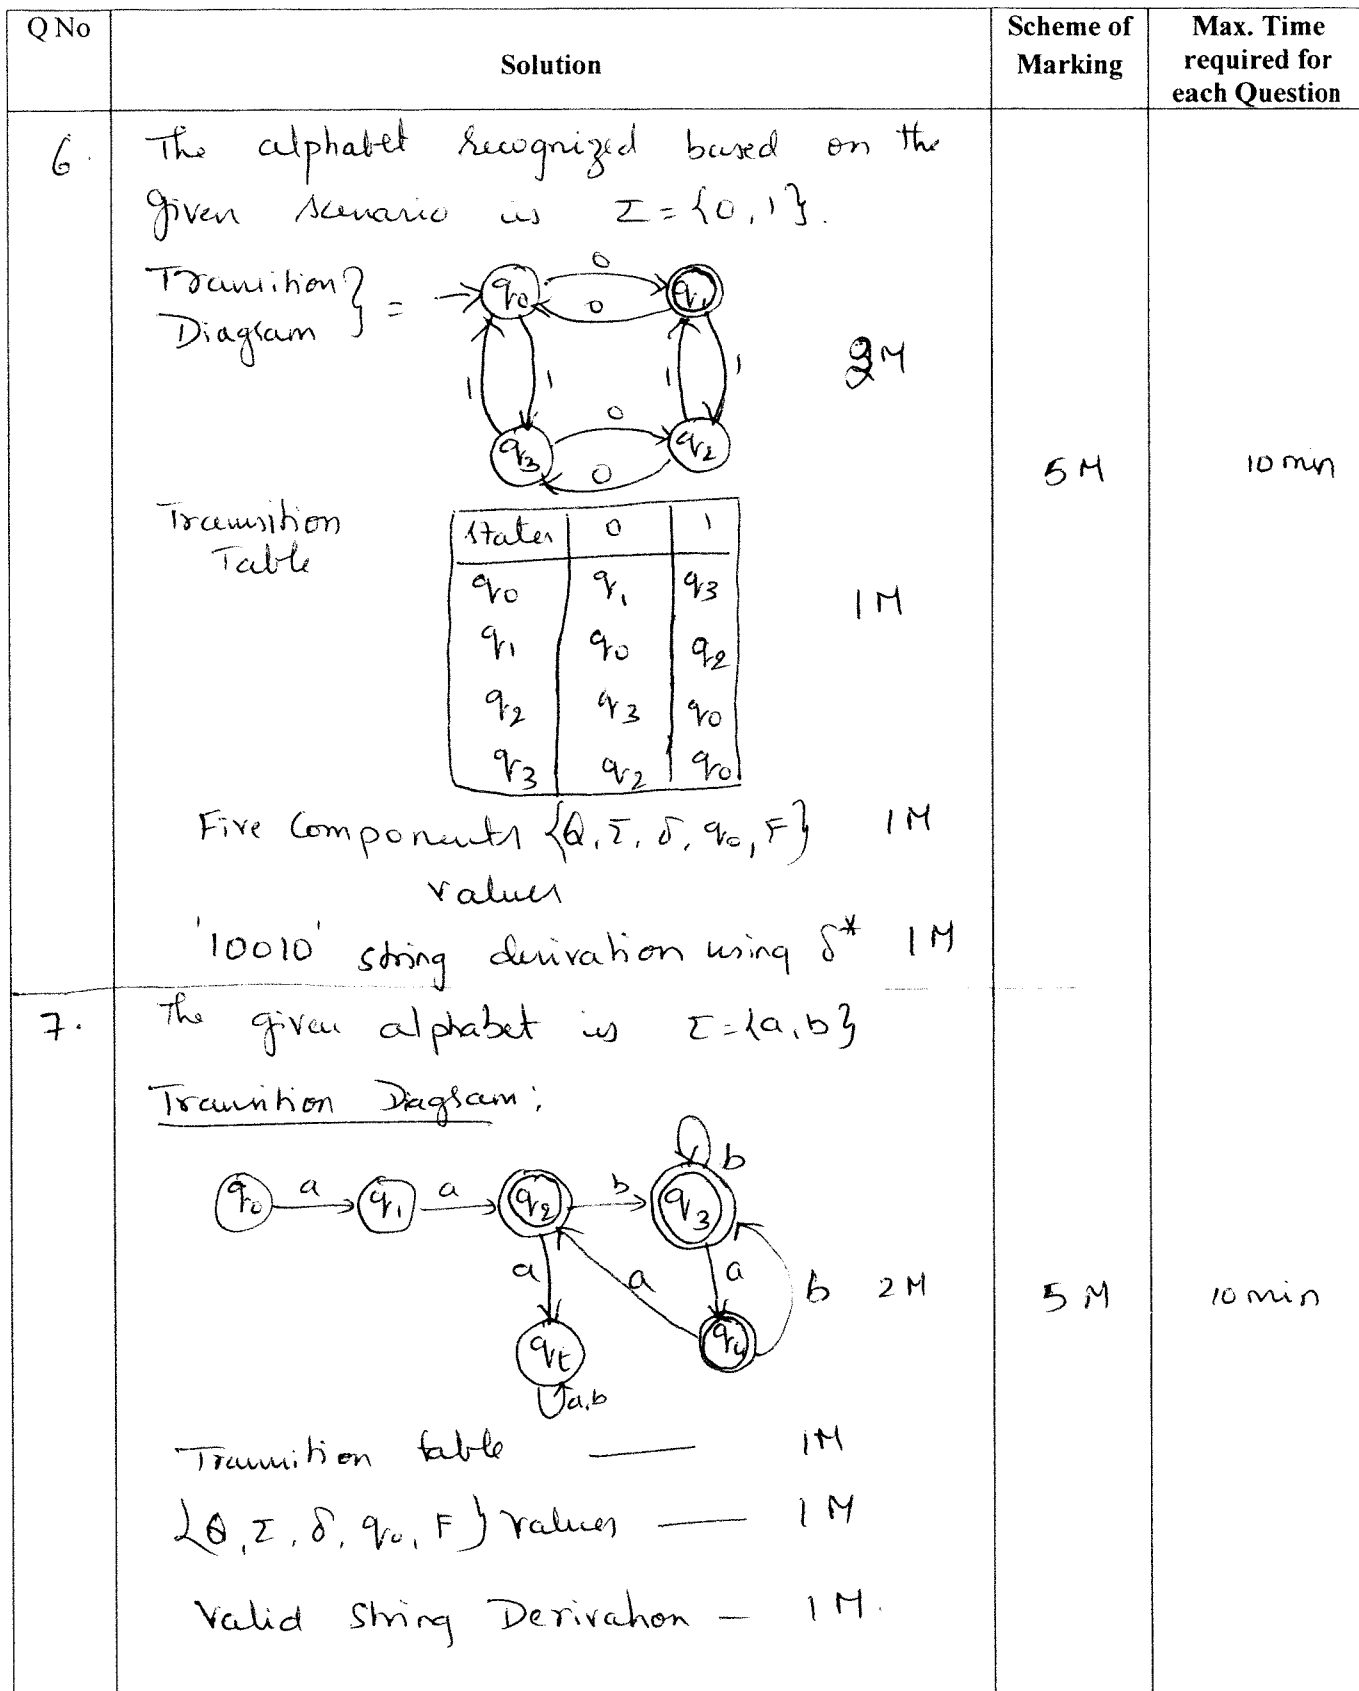 Q No
Solution
Scheme of Marking
Max. Time required for each Question
6.
The alphabet recognized based on the
given scenario is Σ = {0, 1}.
Transition } =
Diagram
q0 0 q1
0
1 1 1 1
0
q3 0 q2
2M
5M
10 min
Transition
Table
States 0 1
q0 q1 q3
q1 q0 q2
q2 q3 q0
q3 q2 q0
1M
Five Components {Q, Σ, δ, q0, F} 1M
values
'10010' string derivation using δ* 1M
7.
The given alphabet is Σ={a,b}
Transition Diagram:
b
q0 a q1 a q2 b q3
a a a b 2M
qt q4
a,b
5M
10 min
Transition table — 1M
{Q, Σ, δ, q0, F} values — 1M
Valid String Derivation – 1M.